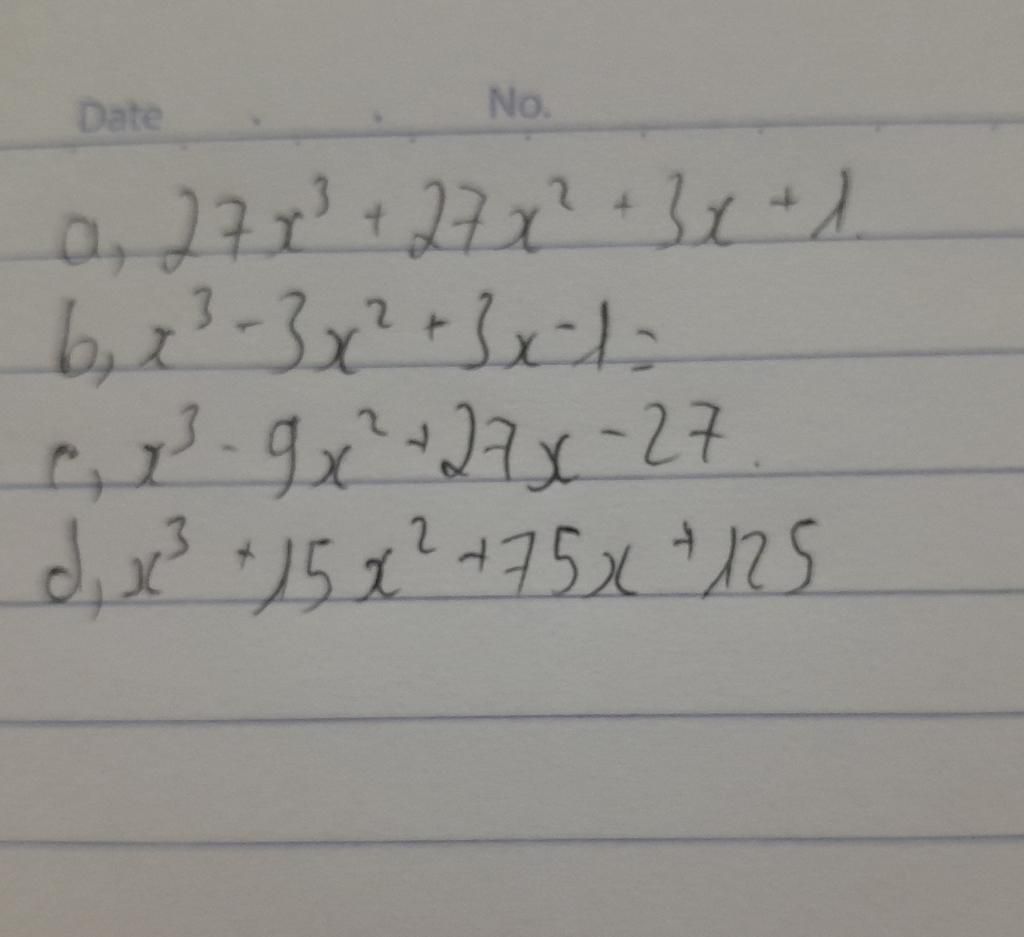 Date . . No.
a, 27x³ + 27x² + 3x + 1.
b, x³ - 3x² + 3x - 1 =
c, x³ - 9x² + 27x - 27.
d, x³ + 15x² + 75x + 125